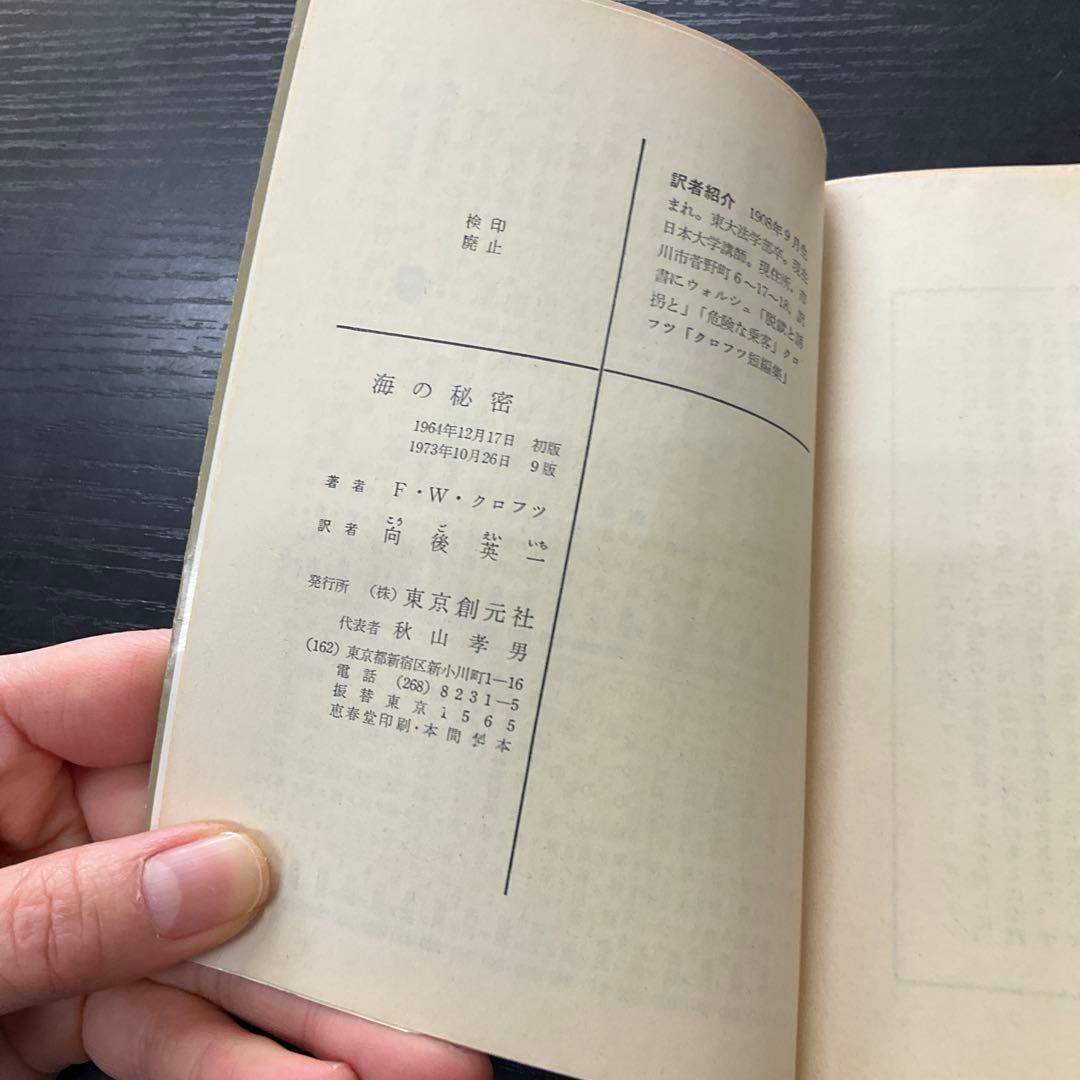 訳者紹介　1908年9月生
まれ。東大法学部卒。現在
日本大学講師。現住所、市
川市菅野町6〜17〜18、訳
書にウォルシュ「脱獄と誘
拐と」「危険な乗客」クロ
フツ「クロフツ短編集」
検印
廃止
海の秘密
1964年12月17日　初版
1973年10月26日　9版
著者　F・W・クロフツ
こうごえいいち
訳者　向後英一
発行所　(株)東京創元社
代表者　秋山孝男
(162)東京都新宿区新小川町1—16
電話　(268)8231—5
振替東京1565
恵春堂印刷・本間製本